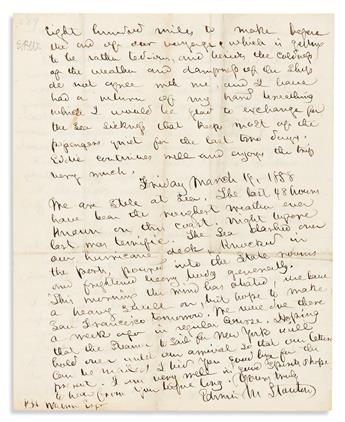 eight hundred miles to make before
the end of our voyage, which is getting
to be rather tedious, and besides the coldness
of the weather and dampness of the ship
do not agree with me and I have
had a return of my hard breathing
which I would be glad to exchange for
the Sea Sickness that keeps most of the
passengers quiet for the last two days.
Eddie continues well and enjoys the trip
very much.
Friday March 19, 1858
We are still at Sea. The last 48 hours
have been the roughest weather ever
known on this coast. Night before
last was terrific. The Sea dashed over
our hurricane deck. Knocked in
the ports, poured into the State rooms
and frightened every body generally.
This morning the wind has abated, we have
a heavy swell on, but hope to make
San Francisco tomorrow. We were due there
a week ago in regular course. Hoping
that the Steamer to Sail for New York will
hold over until our arrival so that our letters
can be mailed, I bid you Good bye for the
present. I am very well in good Spirits & hope
to hear from you before long. Yours truly
Edwin M Stanton
P. H. Watson Esq